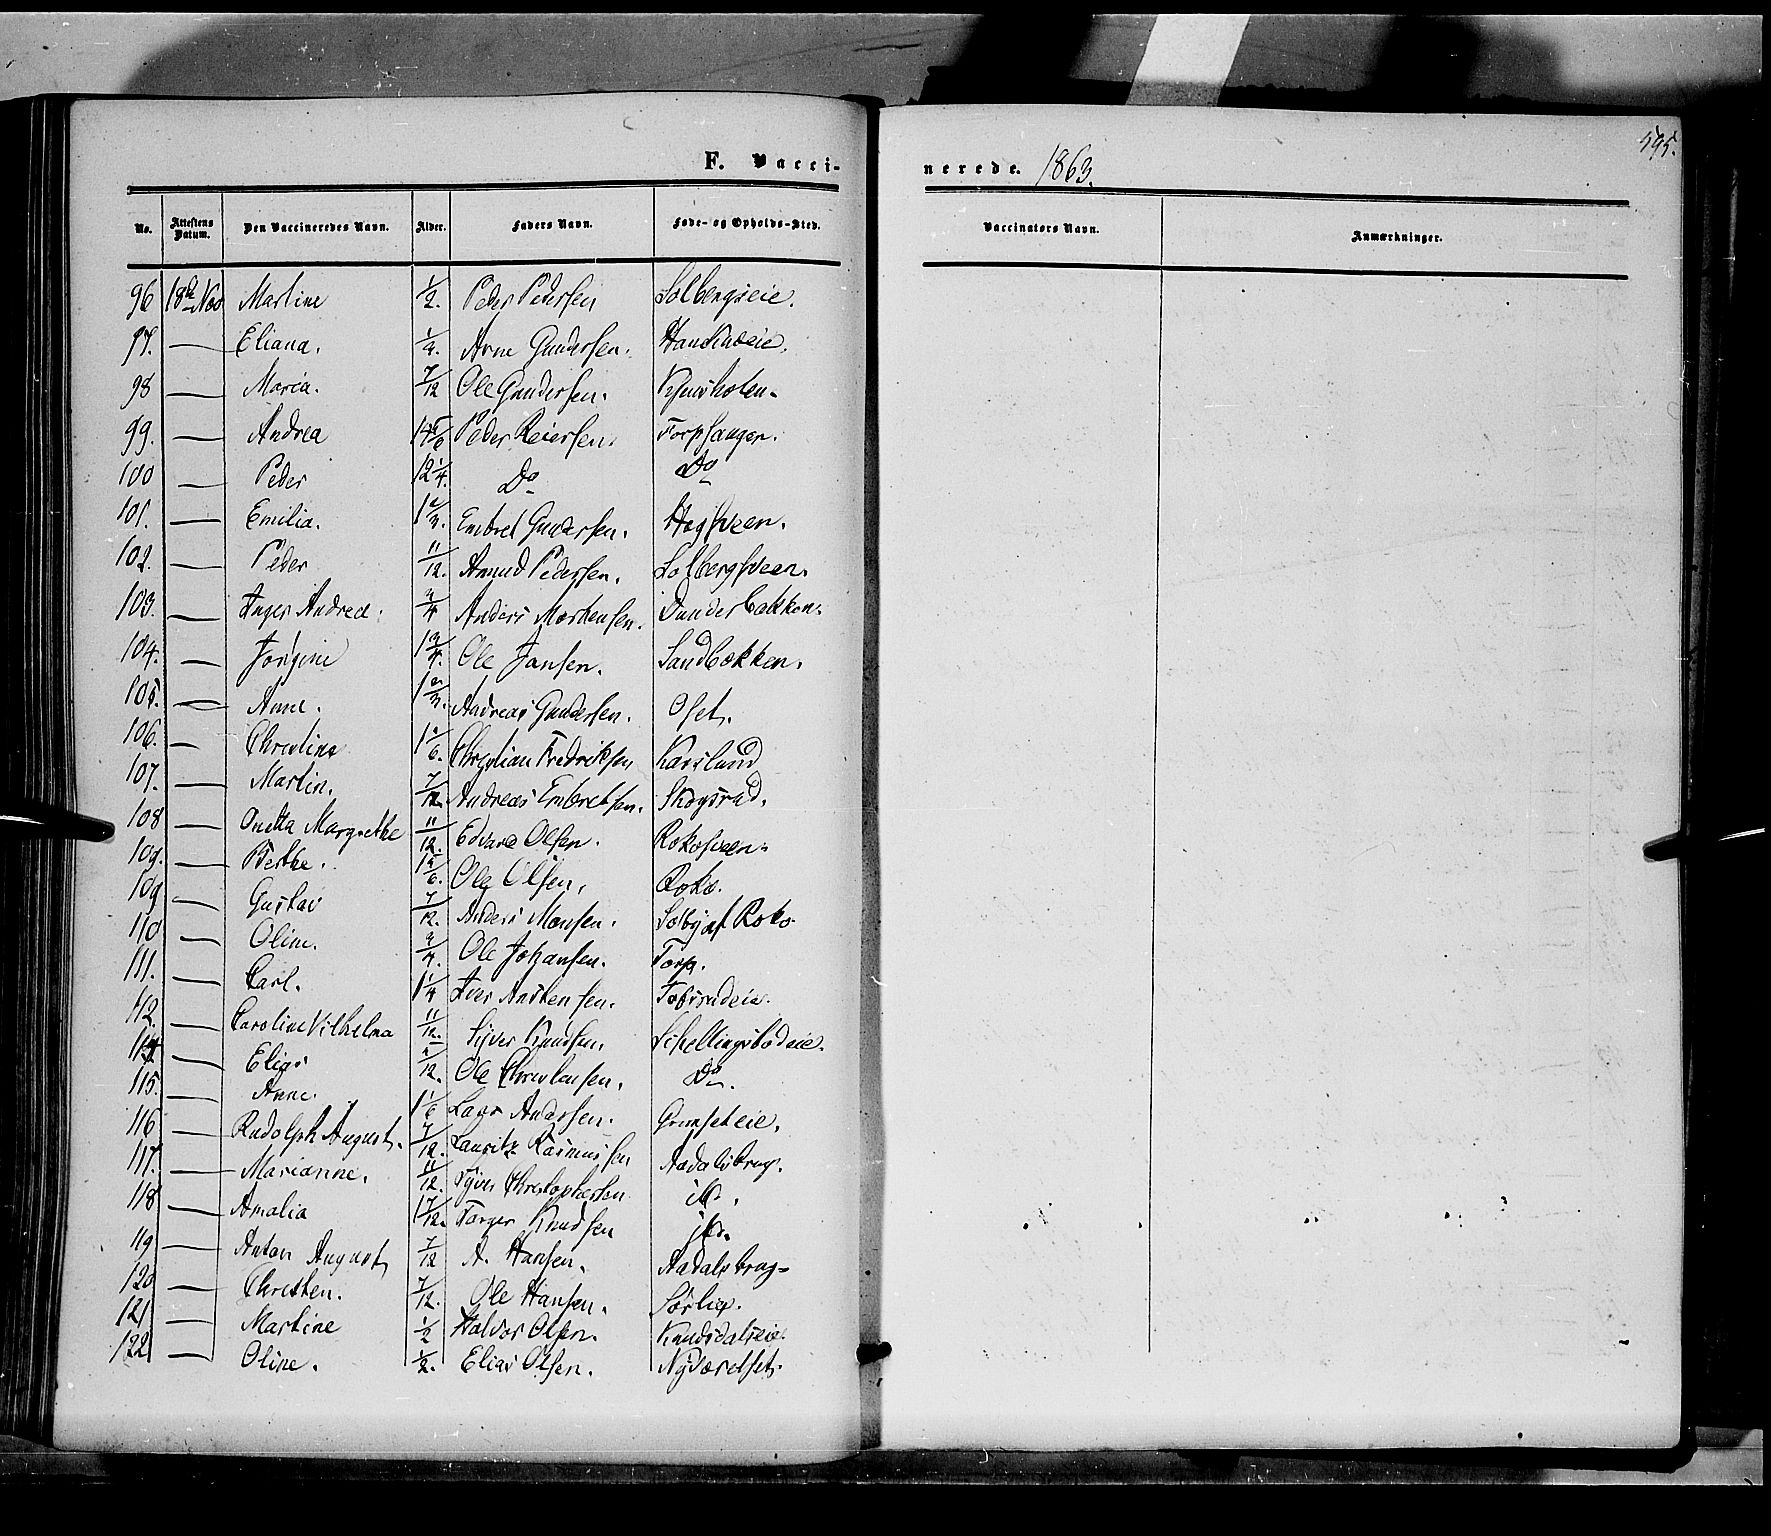 595.
F. Vaccinerede. 1863.
No. Attestens Datum. Den Vaccineredes Navn. Alder. Faders Navn. Føde- og Opholds-Sted. Vaccinators Navn. Anmærkninger.
96 18de Nov Martine 1/2. Peder Pedersen Solbergseie.
97. — Eliana. Arne Gundersen.
98 — Maria. 7/12 Ole Gundersen.
99. — Andrea Peder Reiersen. Torpsanger.
100 — Peder 12 1/4. Do Do
101. — Emilia. 1 2/3. Embret Gundersen. Hagsveen.
102. — Peder 11/12. Amund Pedersen. Solbergsveen.
103. — Inger Andrea. 3/4 Anders Mortensen. Dunderbakken.
104. — Jørgine 1 3/4. Ole Jansen. Sandbakken.
105. — Anne. 1 2/3. Andreas Gundersen. Oset.
106. — Christine 1 1/6. Christian Fredriksen Karslund
107. — Martin. 7/12. Andreas Embretsen. Skogsrud.
108 — Onetta Margrethe 11/12. Edvard Olsen. Rokosveen.
109. — Berthe. 1 5/6. Ole Olsen. Roko.
109 — Gustav 7/12. Anders Monsen. Solbg af Roko
110 — Oline. 3/4. Ole Johansen. Torp.
111. — Carl. 1 1/4 Iver Anstensen.
112. — Caroline Vilhelma 11/12. Syver Knudsen. Skellingsbødeie.
114. — Elias 5/12. Ole Christensen. Do.
115. — Anne. 1 1/6 Lars Andersen. Grimseteie.
116 — Rudolph August. 7/12. Lauritz Rasmussen Aadalsbrug.
117. — Marianne. 11/12. Syver Christophersen do.
118 — Amalia 1 7/12. Torger Knudsen do.
119 — Anton August 7/12 A. Hansen. Aadalsbrug
120 — Christen. 7/12. Ole Hansen. Sørlia.
121 — Martine 1/2 Halvor Olsen. Knudsdalseie.
122 — Oline. 1/2. Elias Olsen.